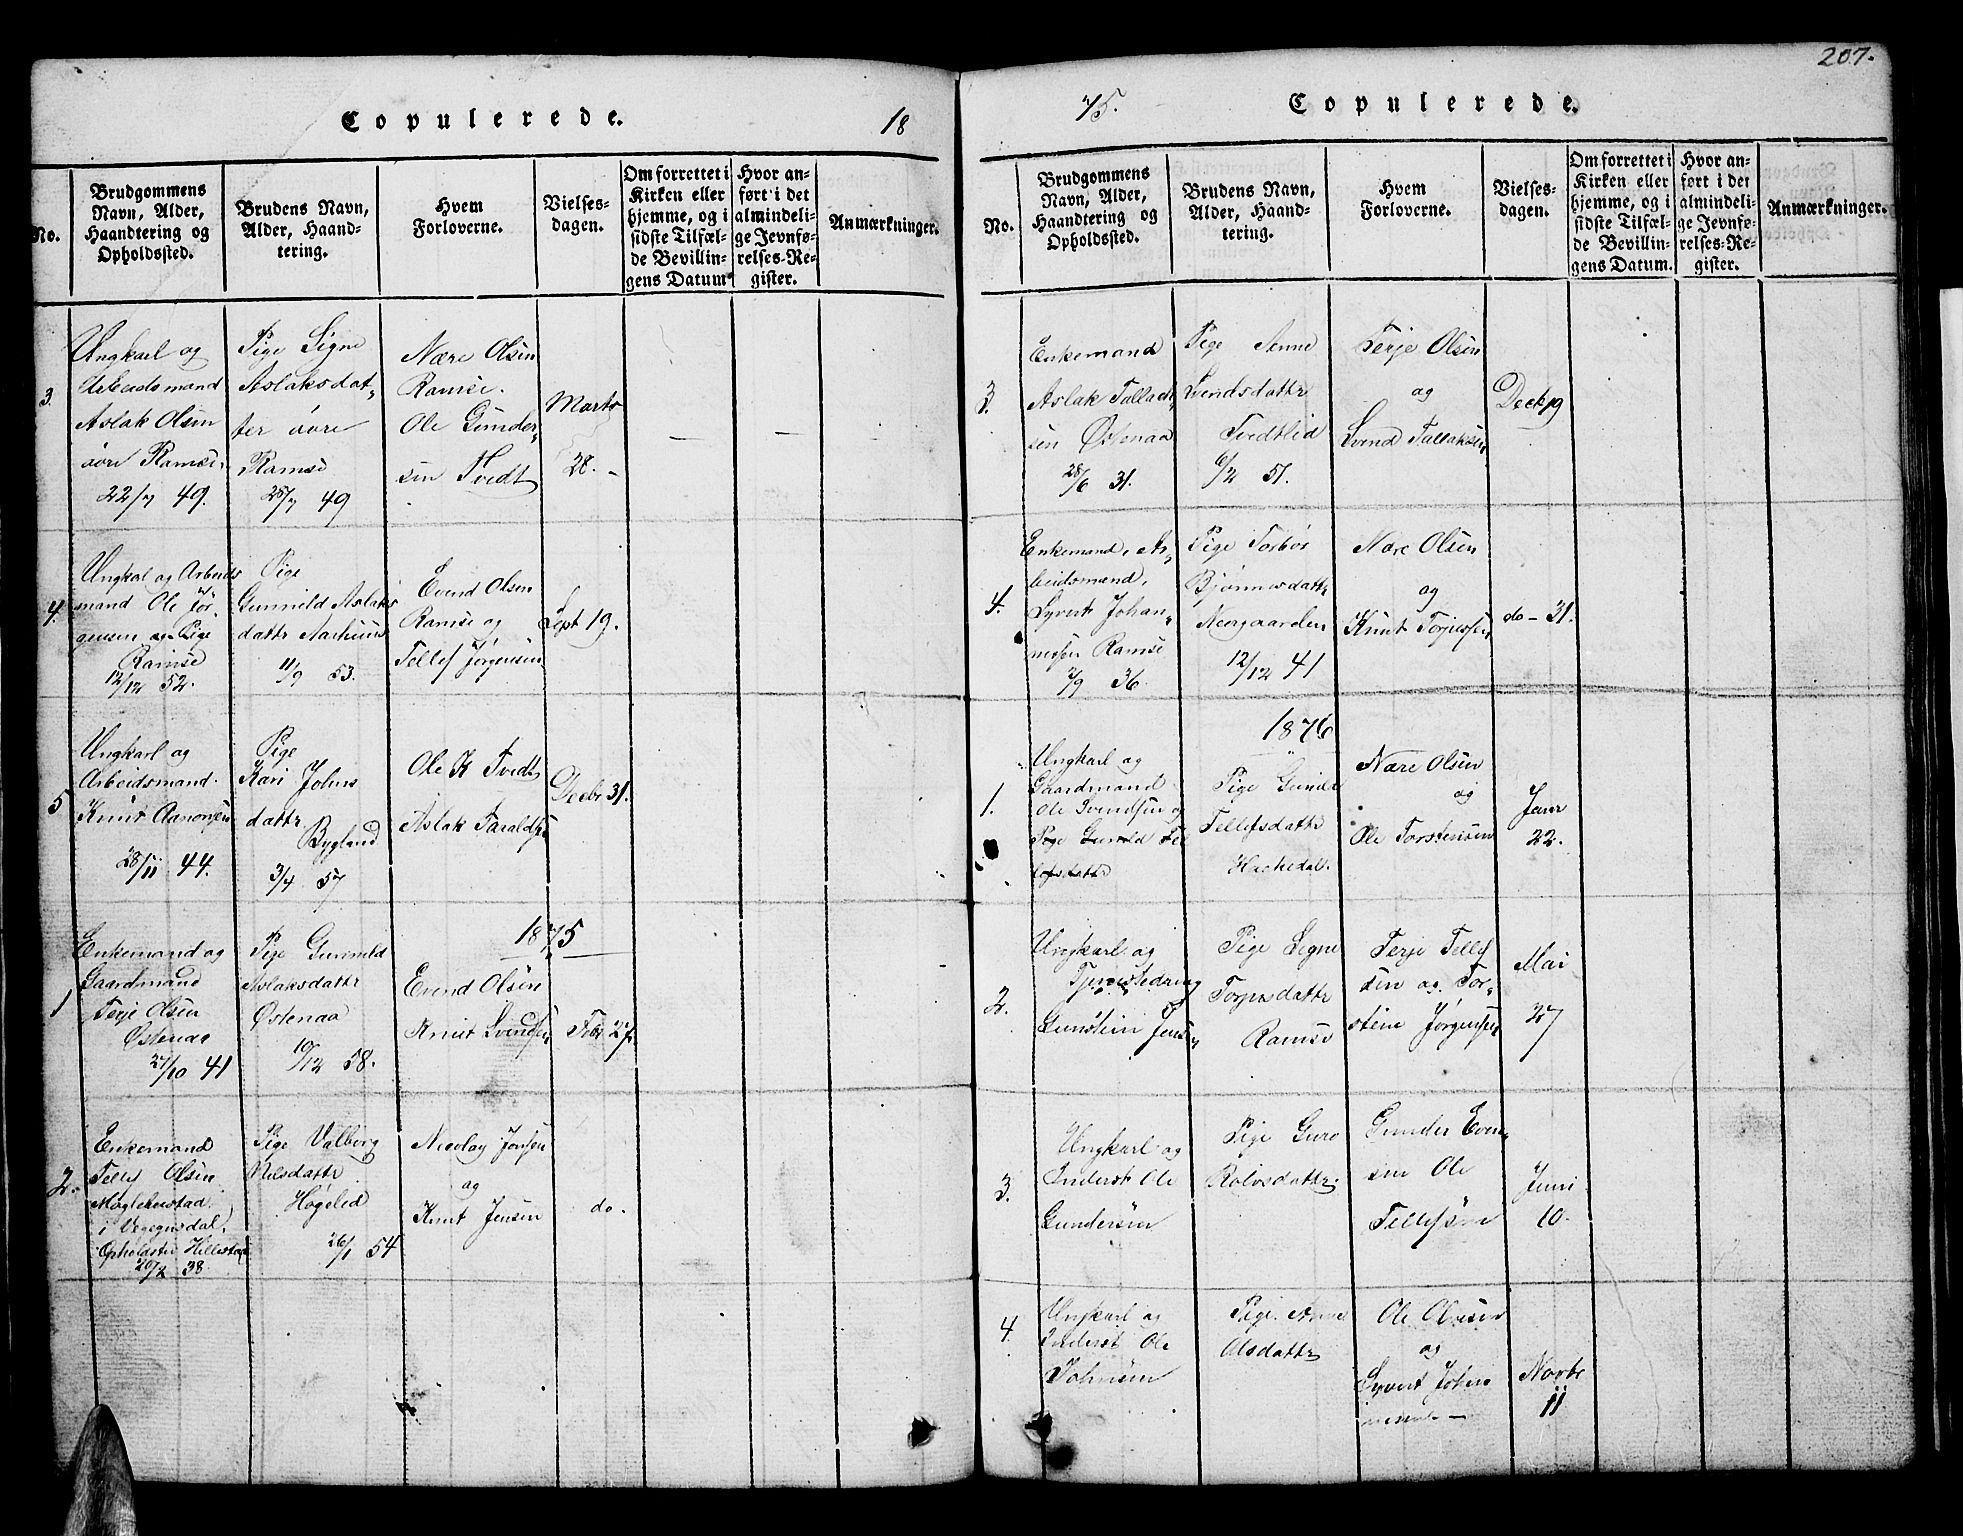 207.
Copulerede.
18
No.
Brudgommens
Navn, Alder,
Haandtering og
Opholdssted.
Brudens Navn,
Alder, Haand-
tering.
Hvem
Forloverne.
Vielses-
dagen.
Om forrettet i
Kirken eller
hjemme, og i
sidste Tilfæl-
de Bevillin-
gens Datum.
Hvor an-
ført i det
almindeli-
ge Jevnfø-
relses-Re-
gister.
Anmærkninger.
3.
Ungkarl og
Arbeidsmand
Aslak Olsen
øvre Ramse.
22/7 49.
Pige Signe
Aslaksdat-
ter øvre
Ramse
25/7 49
Nære Olsen
Ramse.
Ole Gunder-
sen Tvedt
Marts
28. -
4.
Ungkal og Arbeids
mand Ole Jør-
gensen og Pige
Ramse
12/12 52.
Pige
Gunnild Aslaks
dattr
11/9 53.
Evind Olsen
Ramse og
Tellef Jørgensen
Sept 19.
5
Ungkarl og
Arbeidsmand
Knut Aanonsen
28/11 44.
Pige
Kari Johns
dattr
Bygland
3/4 57
Ole K Tvedt
Aslak Taraldse
Decbr 31.
1875
1
Enkemand og
Gaardmand
Terje Olsen
Østenaa
27/10 41
Pige Gunnild
Aslaksdattr
Østenaa
10/12 58.
Evind Olsen
Knut Svendsen
Febr 27.
2.
Enkemand
Tellef Olsen
i Vegegusdal,
20/2 38
Pige Valborg
Nilsdattr
Høgelid
26/1 54
Nicolay Jensen
og
Knut Jensen
do.
75.
Copulerede.
No.
Brudgommens
Navn, Alder,
Haandtering og
Opholdssted.
Brudens Navn,
Alder, Haand-
tering.
Hvem
Forloverne.
Vielses-
dagen.
Om forrettet i
Kirken eller
hjemme, og i
sidste Tilfæl-
de Bevillin-
gens Datum.
Hvor an-
ført i det
almindeli-
ge Jevnfø-
relses-Re-
gister.
Anmærkninger.
3.
Enkemand
Aslak Tallak-
sen Østenaa
28/6 31.
Pige Anne
Svendsdattr
Tvedtlid
6/2 51.
Terje Olsen
og
Svend Tallaksen
Decbr 19
4.
Enkemand, Ar-
beidsmand,
Syvert Johan-
nessen Ramse
2/9 36
Pige Torbor
Bjønnesdattr
Neergaarden
12/12 41
Nære Olsen
og
Knut Torjussen
do - 31.
1876
1.
Ungkarl og
Gaardmand
Ole Svendsen og
Pige Gunild Tel
lefsdattr
Pige Gunild
Tellefsdattr
Hackedal.
Nære Olsen
og
Ole Torstensen
Janr
22.
2.
Ungkarl og
Gunstein Jensen
Pige Signe
Torjusdattr
Ramse
Terje Tellef
sen og Tor-
stein Jørgensen
Mai
27
3.
Ungkarl og
Inderst Ole
Gundersen
Pige Guro
Rolvsdattr.
Gunder Even-
sen Ole
Tellefsen
Juni
10.
4.
Ungkarl og
Inderst Ole
Johnsen
Pige Anne
Olsdattr
Ole Olsen
og
Syvert Johan
nessen
Novbr
11